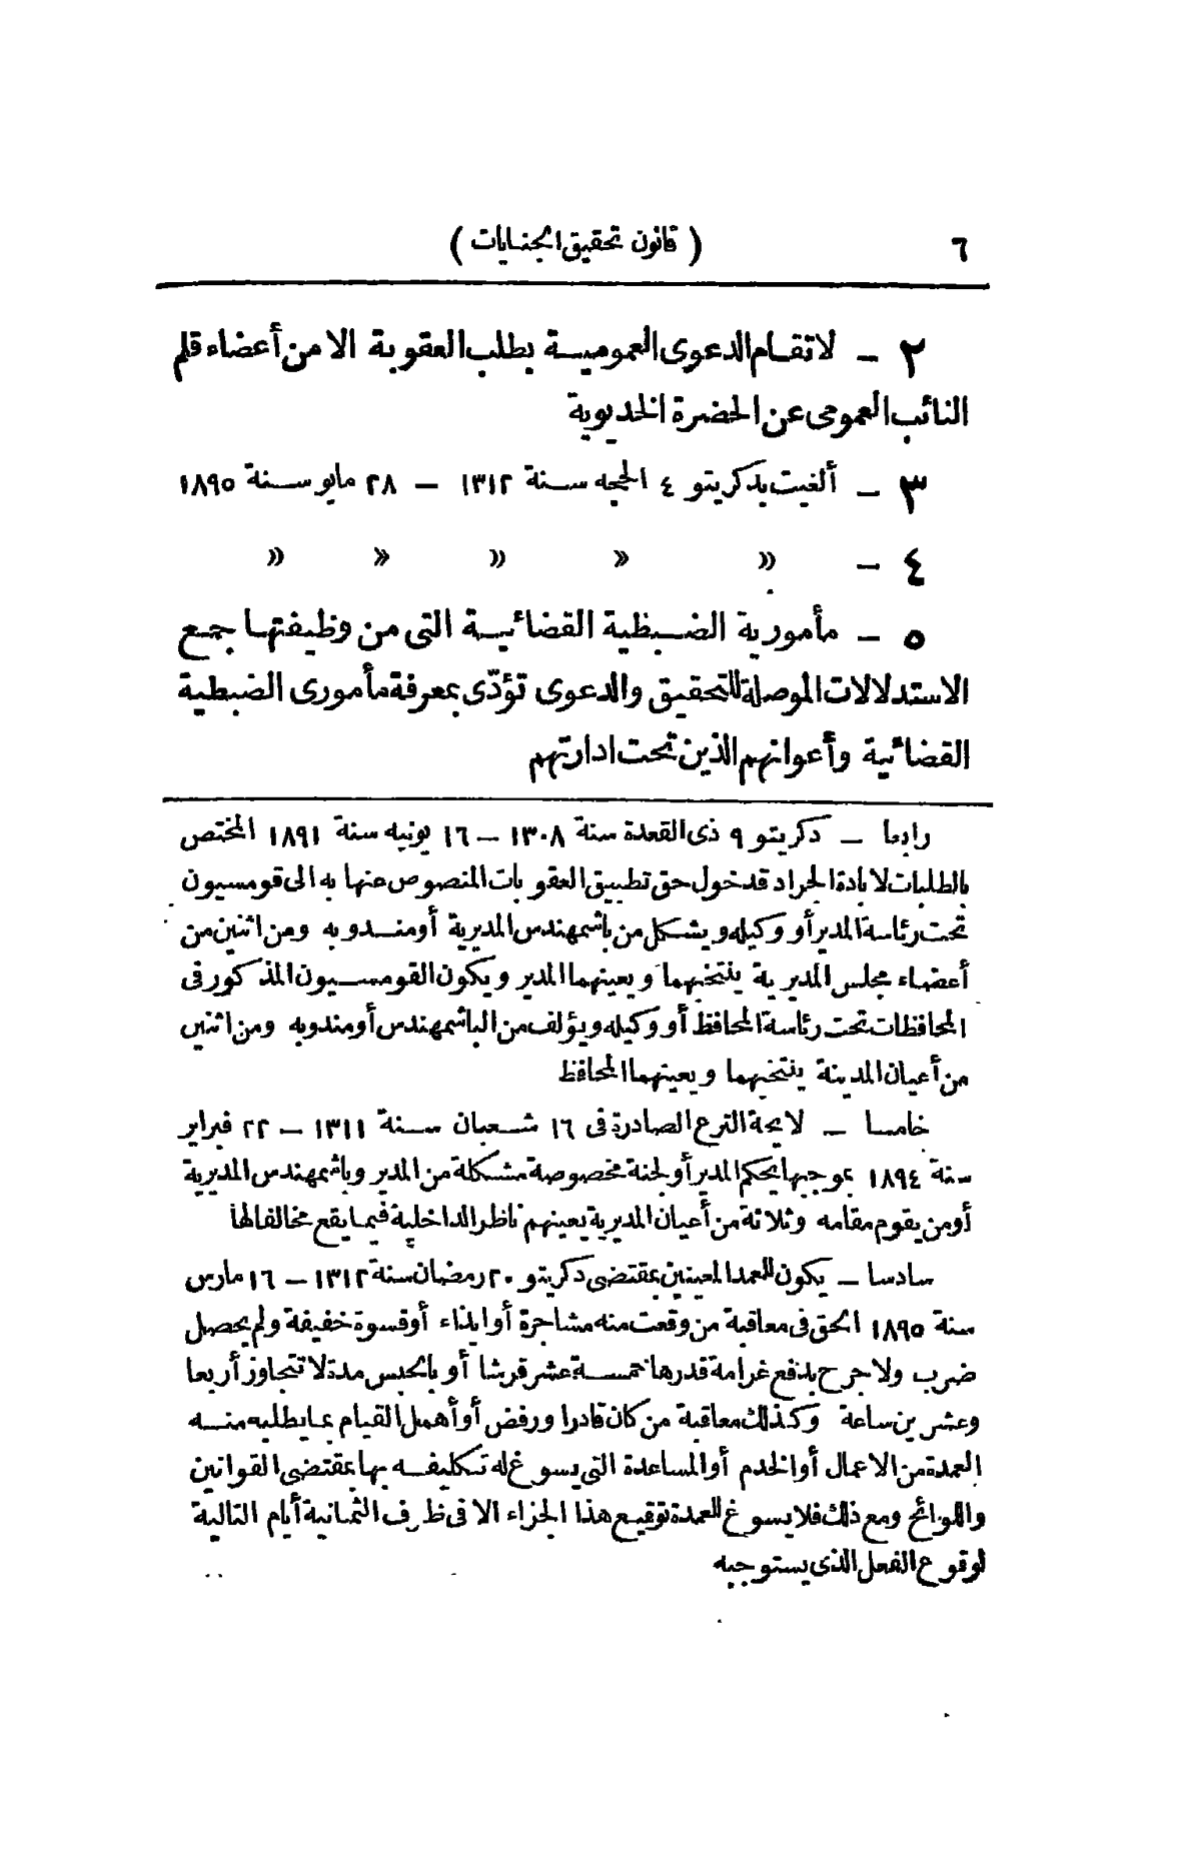 ٦
( قانون تحقيق الجنايات )
٢ – لا تقام الدعوى العمومية بطلب العقوبة الا من أعضاء قلم
النائب العمومى عن الحضرة الخديوية
٣ – ألغيت بدكريتو ٤ الحجه سنة ١٣١٢ – ٢٨ مايو سنة ١٨٩٥
٤ – » » » » »
٥ – مأمورية الضبطية القضائية التى من وظيفتها جمع
الاستدلالات الموصلة للتحقيق والدعوى تؤدّى بمعرفة مأمورى الضبطية
القضائية وأعوانهم الذين تحت ادارتهم
رابعا – دكريتو ٩ ذى القعدة سنة ١٣٠٨ – ١٦ يونيه سنة ١٨٩١ المختص
بالطلبات لابادة الجراد قد خول حق تطبيق العقوبات المنصوص عنها به الى قومسيون
تحت رئاسة المدير أو وكيله ويشكل من باشمهندس المديرية أو مندوبه ومن اثنين من
أعضاء مجلس المديرية ينتخبهما ويعينهما المدير ويكون القومسيون المذكور فى
المحافظات تحت رئاسة المحافظ أو وكيله ويؤلف من الباشمهندس أو مندوبه ومن اثنين
من أعيان المدينة ينتخبهما ويعينهما المحافظ
خامسا – لايحة الترع الصادرة فى ١٦ شعبان سنة ١٣١١ – ٢٢ فبراير
سنة ١٨٩٤ بموجبها يحكم المدير أو لجنة مخصوصة مشكلة من المدير وباشمهندس المديرية
أو من يقوم مقامه وثلاثة من أعيان المديرية يعينهم ناظر الداخلية فيما يقع مخالفا لها
سادسا – يكون للعمد المعينين بمقتضى دكريتو ٢٠ رمضان سنة ١٣١٢ – ١٦ مارس
سنة ١٨٩٥ الحق فى معاقبة من وقعت منه مشاجرة أو ايذاء أو قسوة خفيفة ولم يحصل
ضرب ولا جرح بدفع غرامة قدرها خمسة عشر قرشا أو بالحبس مدة لا تتجاوز أربعا
وعشرين ساعة وكذلك معاقبة من كان قادرا ورفض أو أهمل القيام بما يطلبه منه
العمدة من الاعمال أو الخدم أو المساعدة التى يسوغ له تكليفه بها بمقتضى القوانين
واللوائح ومع ذلك فلا يسوغ للعمدة توقيع هذا الجزاء الا فى ظرف الثمانية أيام التالية
لوقوع الفعل الذى يستوجبه